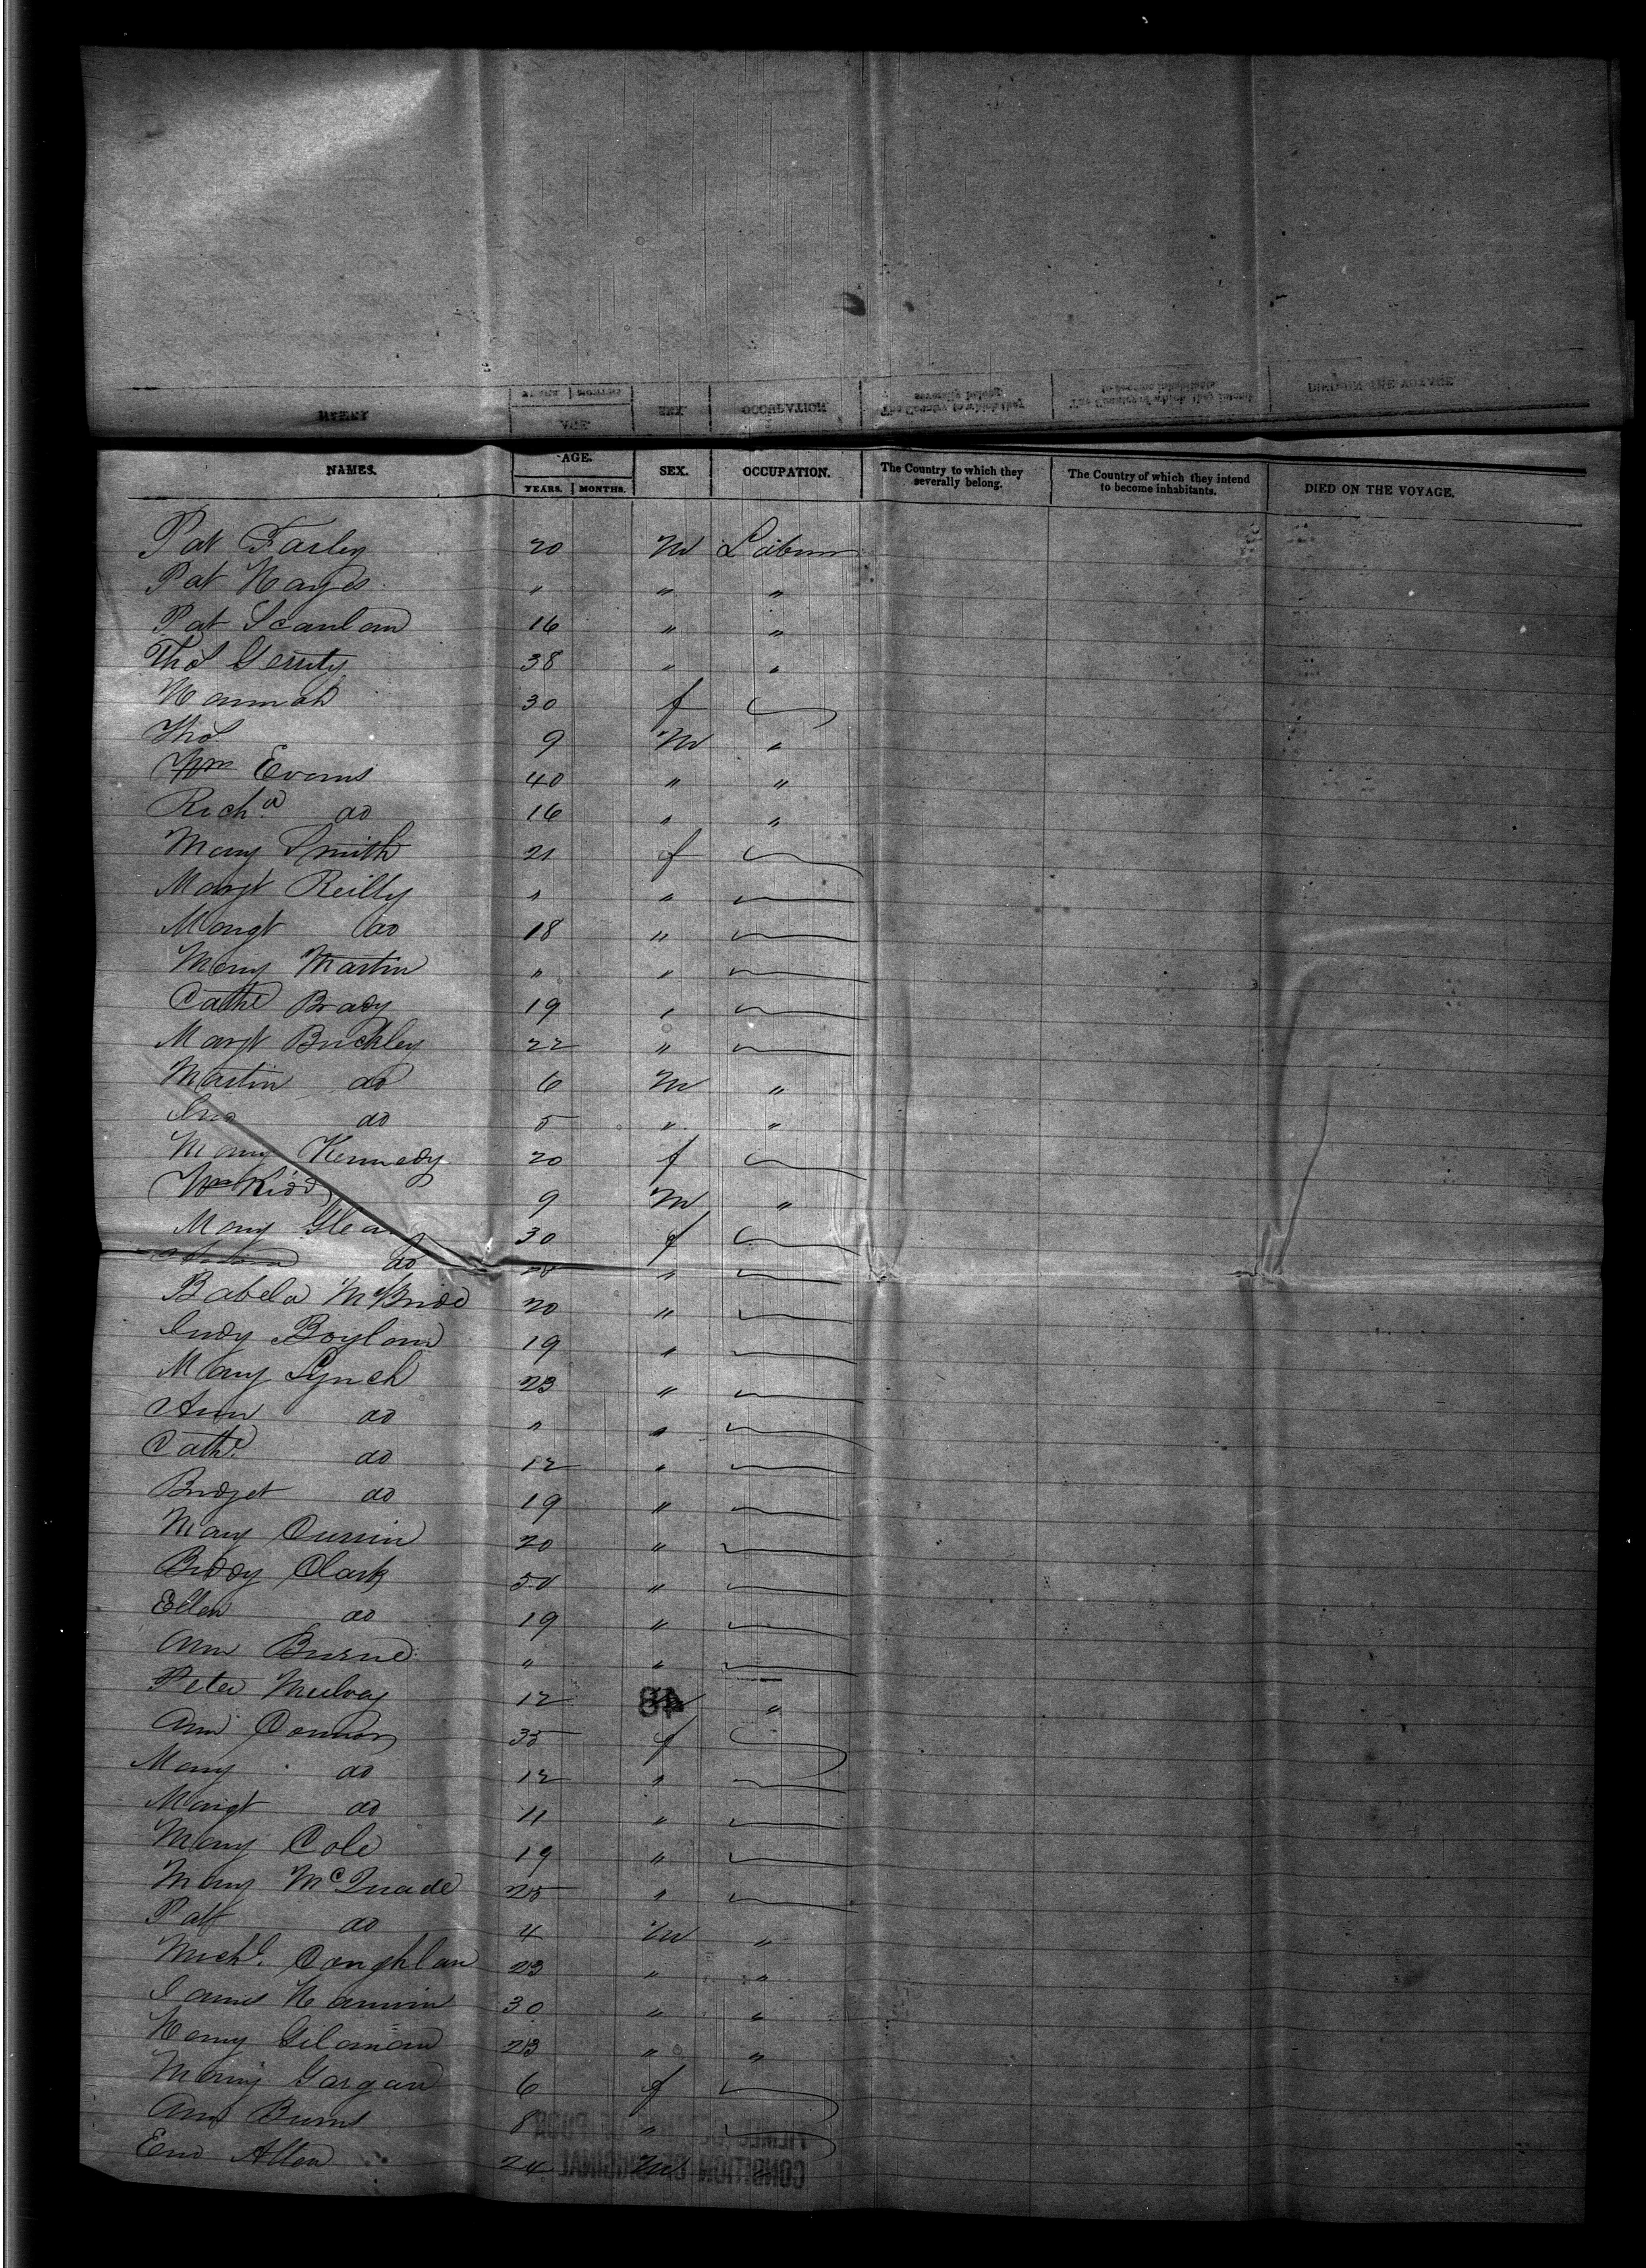 NAMES. AGE. YEARS. MONTHS. SEX. OCCUPATION. The Country to which they severally belong. The Country of which they intend to become inhabitants. DIED ON THE VOYAGE.
Pat Farley 20 M Labour
Pat Hayes " " "
Pat Scanlan 16 " "
Thos Gerrity 38 " "
Hannah 30 f
Thos 9 M "
Wm Evans 40 " "
Richd do 16 " "
Mary Smith 21 f
Margt Reilly " "
Margt do 18 "
Mary Martin " "
Cathe Brady 19 "
Margt Buckley 22 "
Martin do 6 M "
Jno do 5 " "
Mary Kennedy 20 f
Wm Kidd 9 M "
Mary 30 f
do "
Babela McBride 20 "
Judy Boylan 19 "
Mary Lynch 23 "
Ann do " "
Cathe do 12 "
Bridget do 19 "
Mary Currin 20 "
Biddy Clark 50 "
Ellen do 19 "
Ann Burne " "
Peter Mulvey 12 48 "
Ann Connor 35 f
Mary do 12 "
Margt do 11 "
Mary Cole 19 "
Mary McQuade 25 "
Patt do 4 M "
Michl. Coughlan 23 " "
James Hannin 30 " "
Henry 23 " "
Mary Gargan 6 f
Ann Burns 8 "
Allen 24 M "